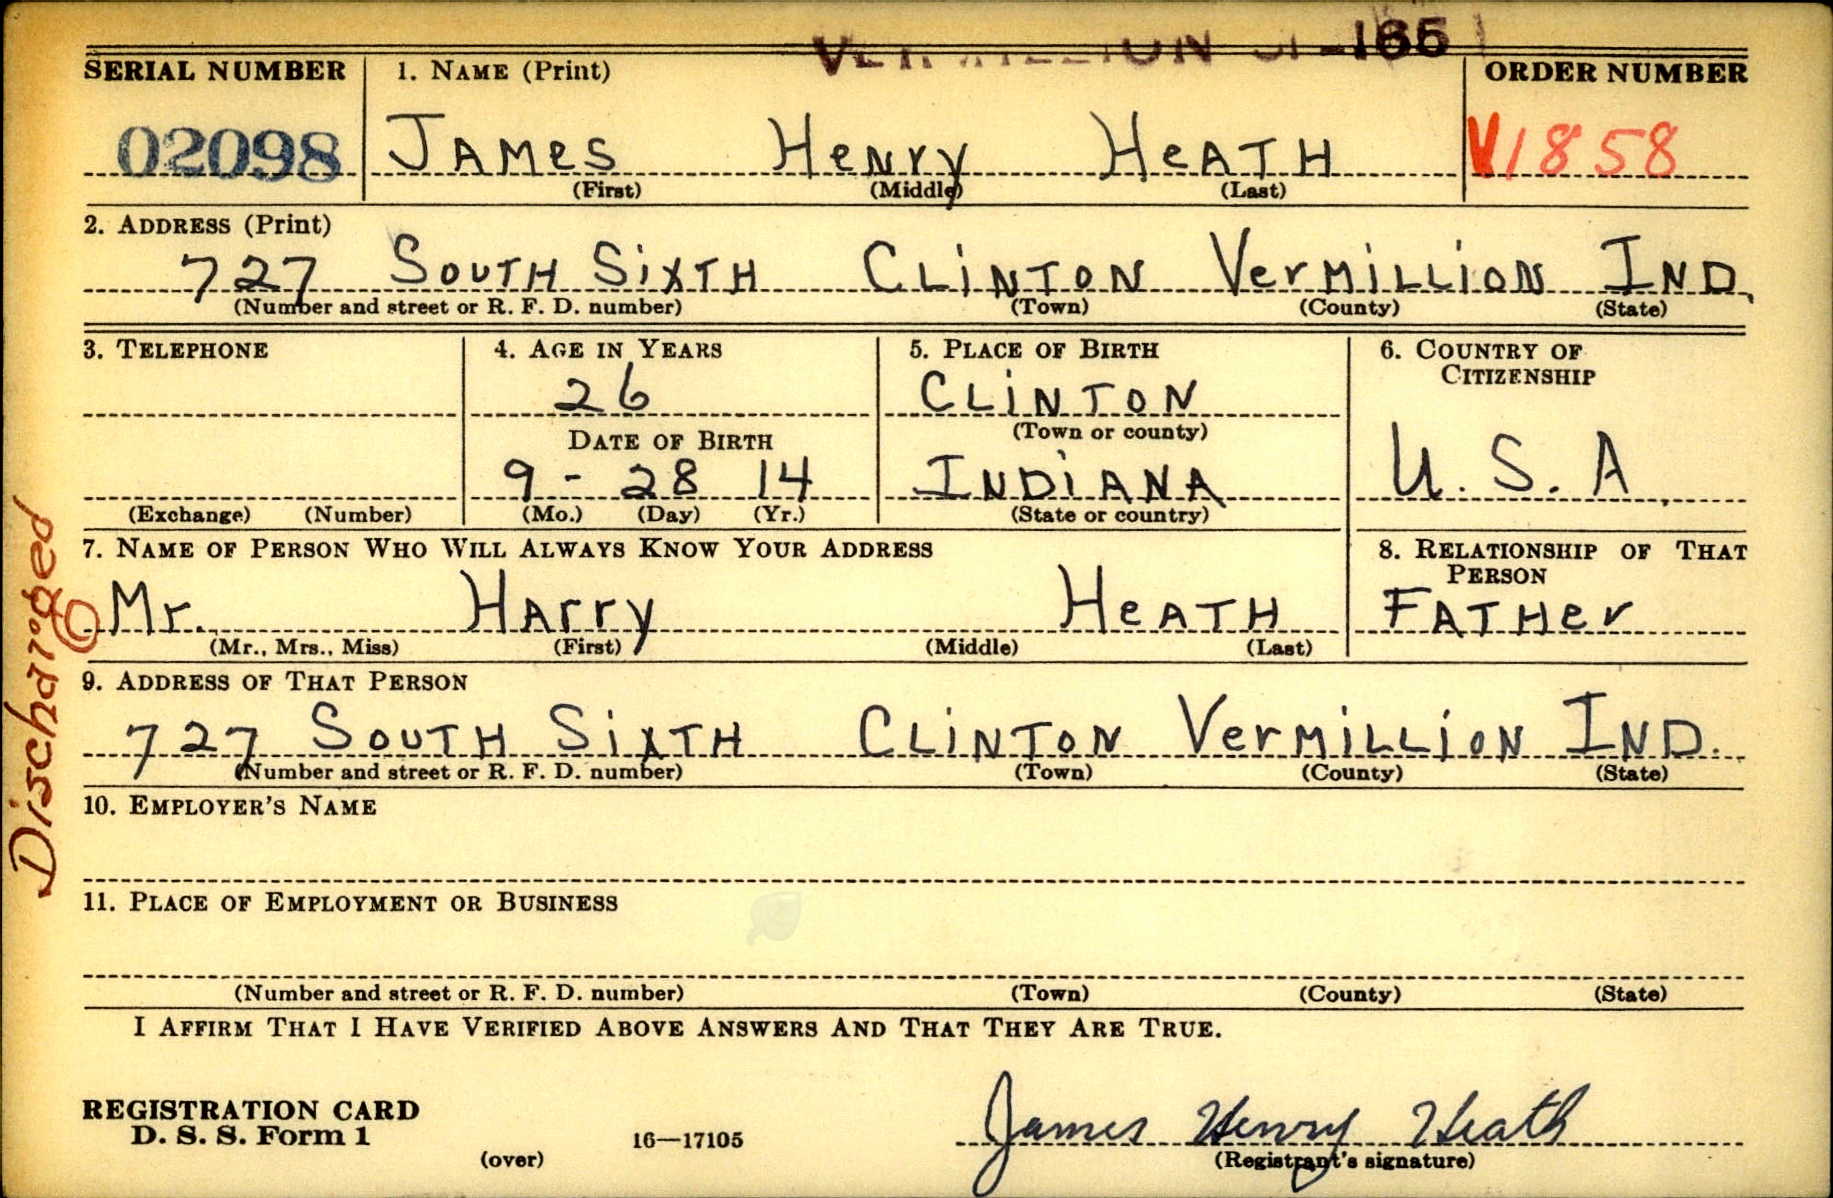 VERMILLION 165
SERIAL NUMBER 1. NAME (Print) ORDER NUMBER
02098 JAMes HeNry HeATH V1858
(First) (Middle) (Last)
2. ADDRESS (Print)
727 SOUTH SiXTH CLiNTON VerMiLLiON IND.
(Number and street or R. F. D. number) (Town) (County) (State)
3. TELEPHONE 4. AGE IN YEARS 5. PLACE OF BIRTH 6. COUNTRY OF CITIZENSHIP
26 CLiNTON
DATE OF BIRTH (Town or county)
9 - 28 14 INDiANA U. S. A.
(Exchange) (Number) (Mo.) (Day) (Yr.) (State or country)
7. NAME OF PERSON WHO WILL ALWAYS KNOW YOUR ADDRESS 8. RELATIONSHIP OF THAT PERSON
Mr. HArry HeATH FATHer
(Mr., Mrs., Miss) (First) (Middle) (Last)
9. ADDRESS OF THAT PERSON
727 SOUTH SiXTH CLiNTON VerMiLLiON IND.
(Number and street or R. F. D. number) (Town) (County) (State)
10. EMPLOYER'S NAME
11. PLACE OF EMPLOYMENT OR BUSINESS
(Number and street or R. F. D. number) (Town) (County) (State)
I AFFIRM THAT I HAVE VERIFIED ABOVE ANSWERS AND THAT THEY ARE TRUE.
REGISTRATION CARD
D. S. S. Form 1 16—17105 James Henry Heath
(over) (Registrant's signature)
Discharged